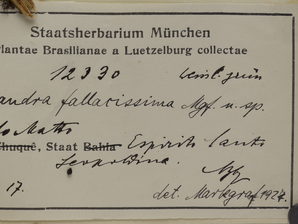 Staatsherbarium München
Plantae Brasilianae a Luetzelburg collectae
12330
andra fallacissima Mgf. n. sp.
Matto
Chuquê, Staat Bahia Espirito Santo
17.
det. Markgraf 1927.